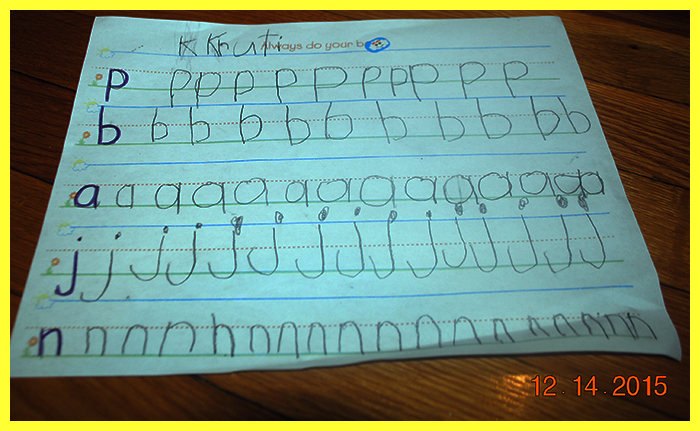 K Kruti Always do your b
p p p p p p p p p p p
b b b b b b b b b b b
a a a a a a a a a a a a a a
j j j j j j j j j j j j j j j
n n n n h n n n n n n n n n n n n n
12.14.2015